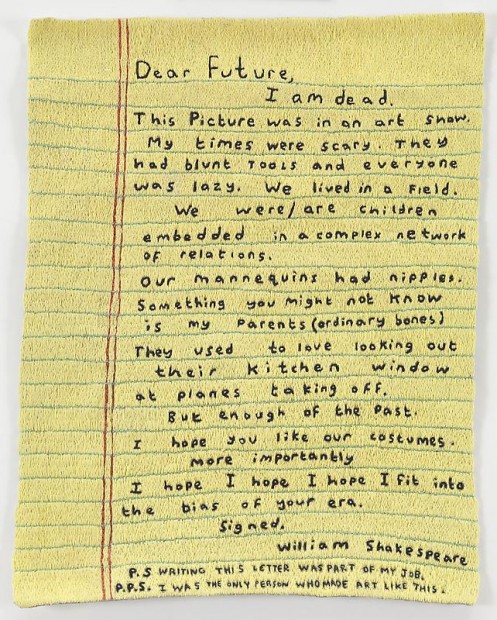 Dear Future,
I am dead.
This Picture was in an art show.
My times were scary. They
had blunt Tools and everyone
was lazy. We lived in a Field.
We were/are children
embedded in a complex network
of relations.
Our mannequins had nipples.
Something you might not know
is my Parents (ordinary bones)
They used to love looking out
their kitchen window
at planes taking off.
But enough of the Past.
I hope you like our costumes.
more importantly
I hope I hope I hope I fit into
the bias of your era.
Signed.
William Shakespeare
P.S WRITING THIS LETTER WAS PART OF MY JOB.
P.P.S. I WAS THE ONLY PERSON WHO MADE ART LIKE THIS.